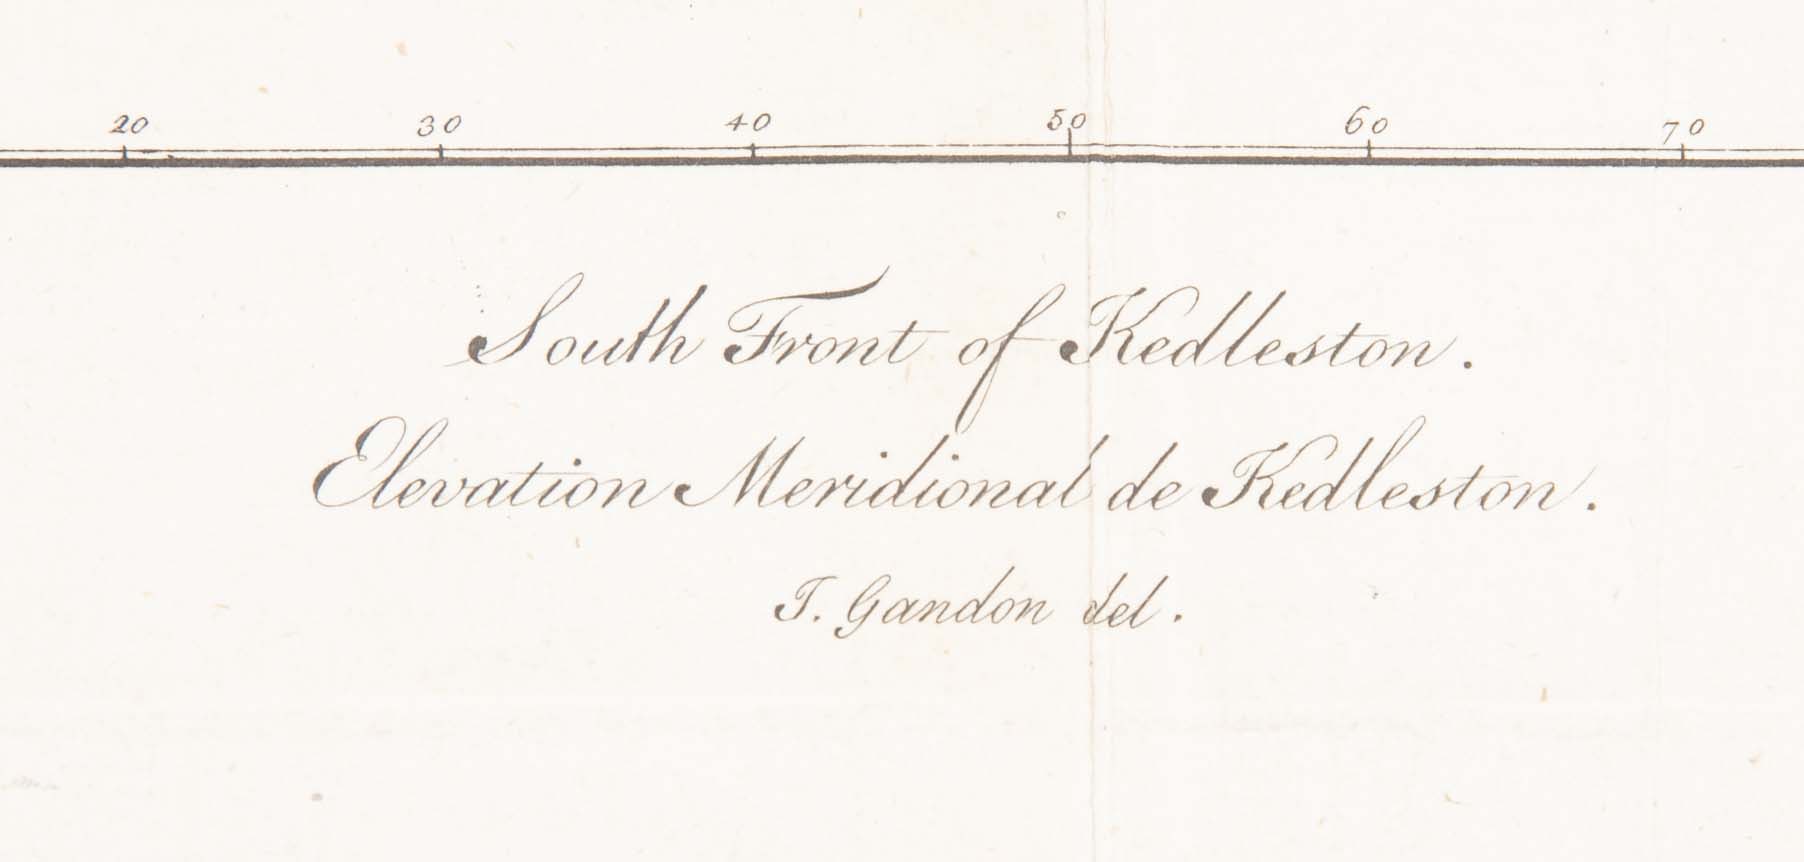 20 30 40 50 60 70
South Front of Kedleston.
Elevation Meridional de Kedleston.
J. Gandon del.